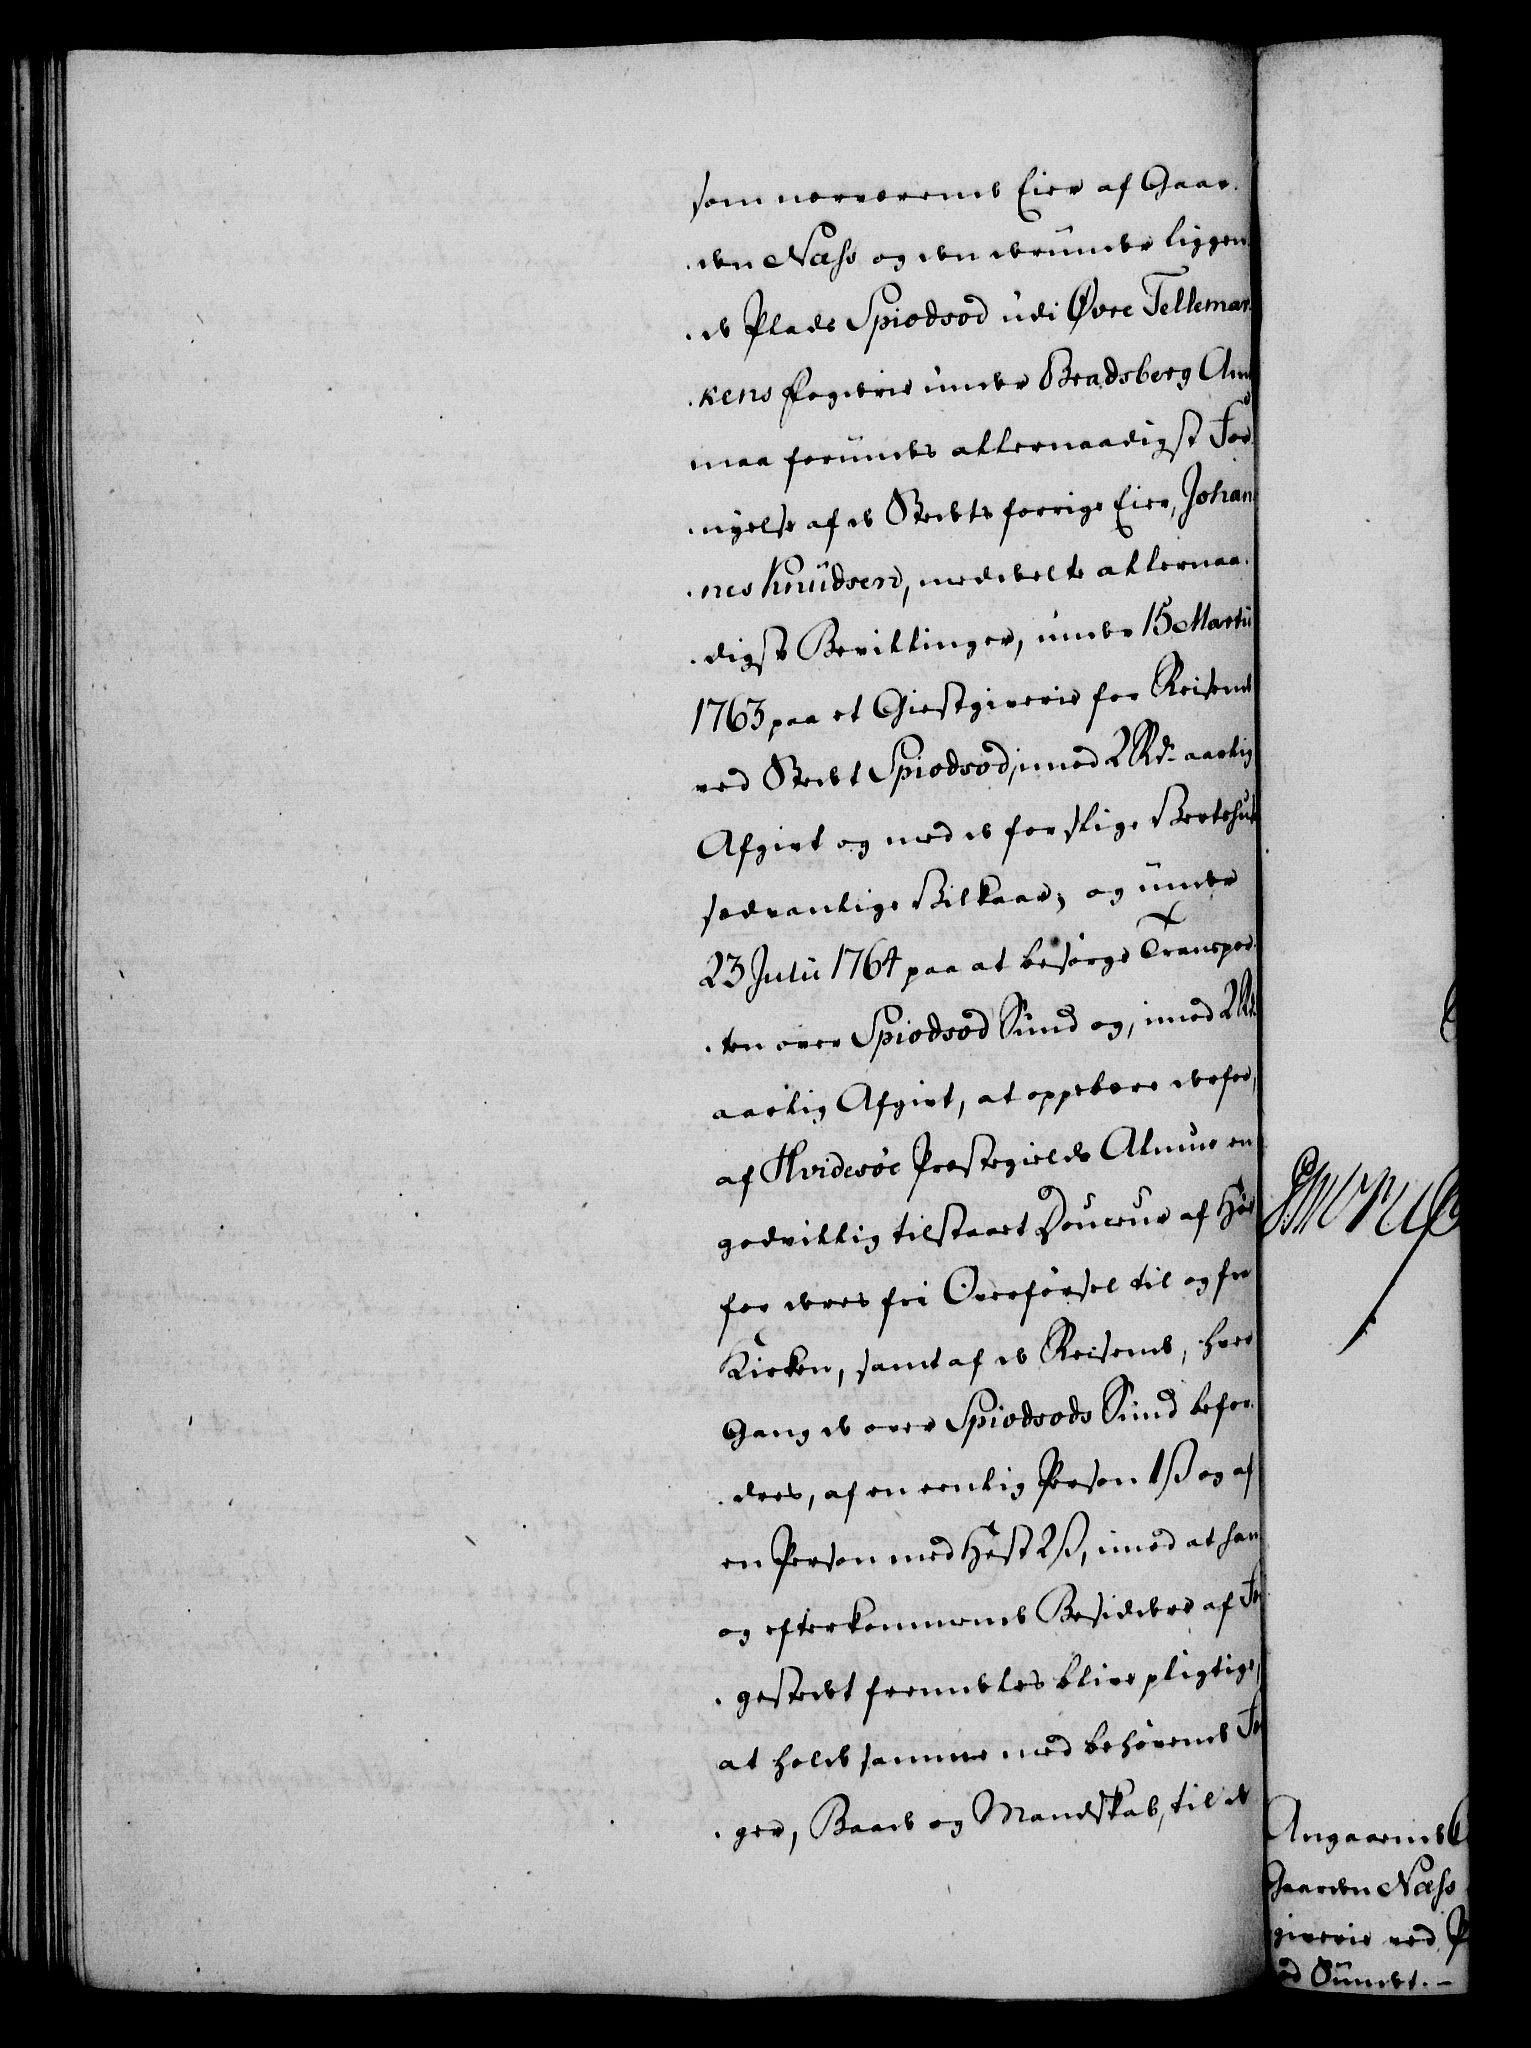 som nærværende Eier af Gaar-
den Næss og den derunder liggen-
de Plads Spiodsod udi Øvre Tellemar-
kens Fogderie under Bradsberg Amt
maa forundes allernaadigst For-
nyelse af de Stedets forrige Eier, Johan-
nes Knudsen, meddeelte allernaa-
digste Bevillinger, under 15 Martii
1763 paa et Giestgiverie for Reisende
ved Stedet Spiodsod, imod 2 Rd. aarlig
Afgivt og med de for slige Bertshuse
sædvanlige Vilkaar; og under
23 Julii 1764 paa at besørge Transpor-
ten over Spiodsod Sund og, imod 2 Rd.
aarlig Afgivt, at oppebære derfor,
af Hvidesøe Præstegields Almue en
godvillig tilstaaet Douceur af Høe
for deres fri Overførsel til og fra
Kirken, samt af de Reisende, hver
Gang de over Spiodsods Sund befor-
dres, af en eenlig Person 1 ß og af
en Person med Hest 2 ß, imod at han
og efterkommende Besiddere af Fer-
gestedet fremdeles blive pligtige,
at holde samme med behøvende Fer-
ger, Baade og Mandskab, til de
Angaaende
Gaarden Næss
giverie ved
Sundet.-